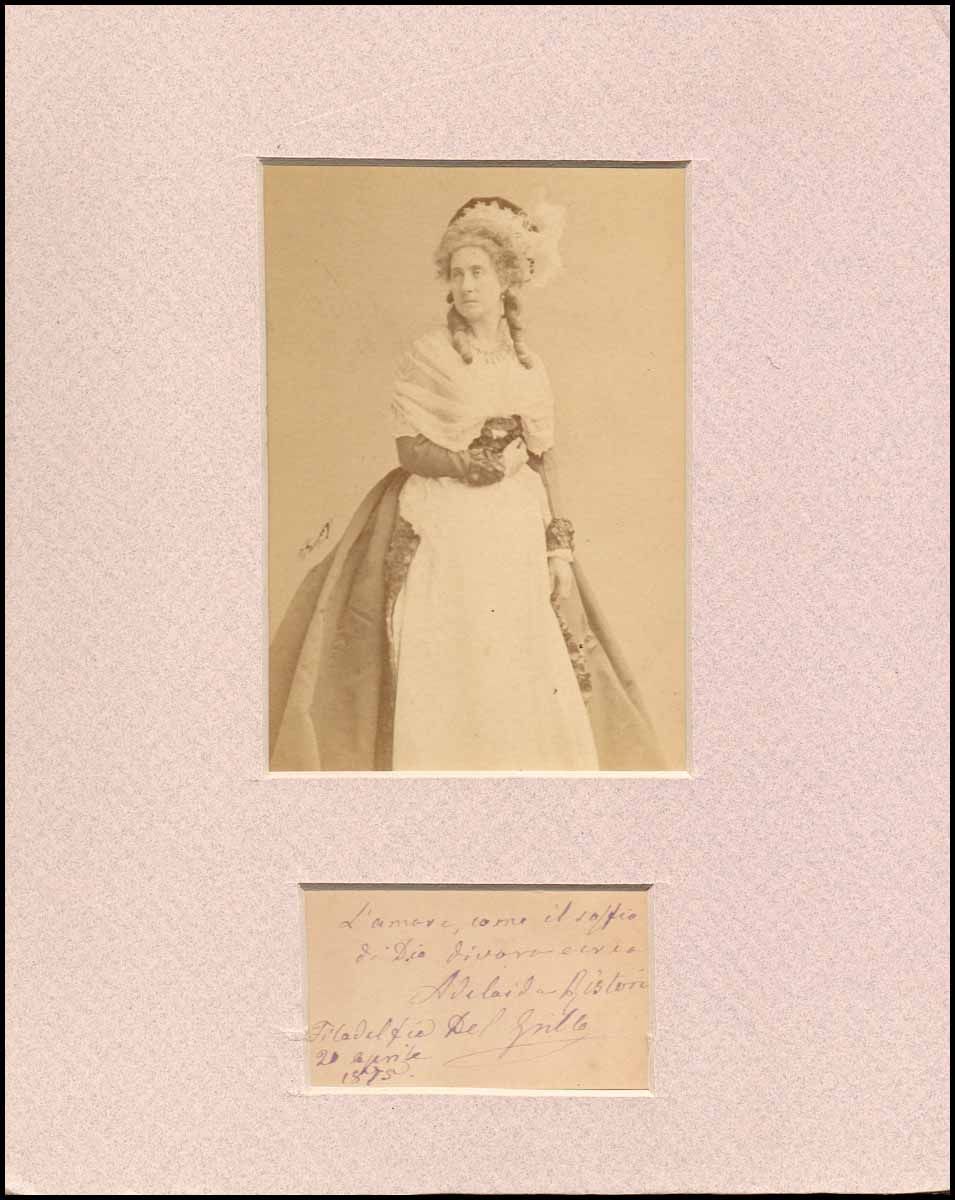 L'amore, come il soffio
di Dio divora e crea
Adelaide Ristori
Del Grillo
Filadelfia
20 aprile
1875.